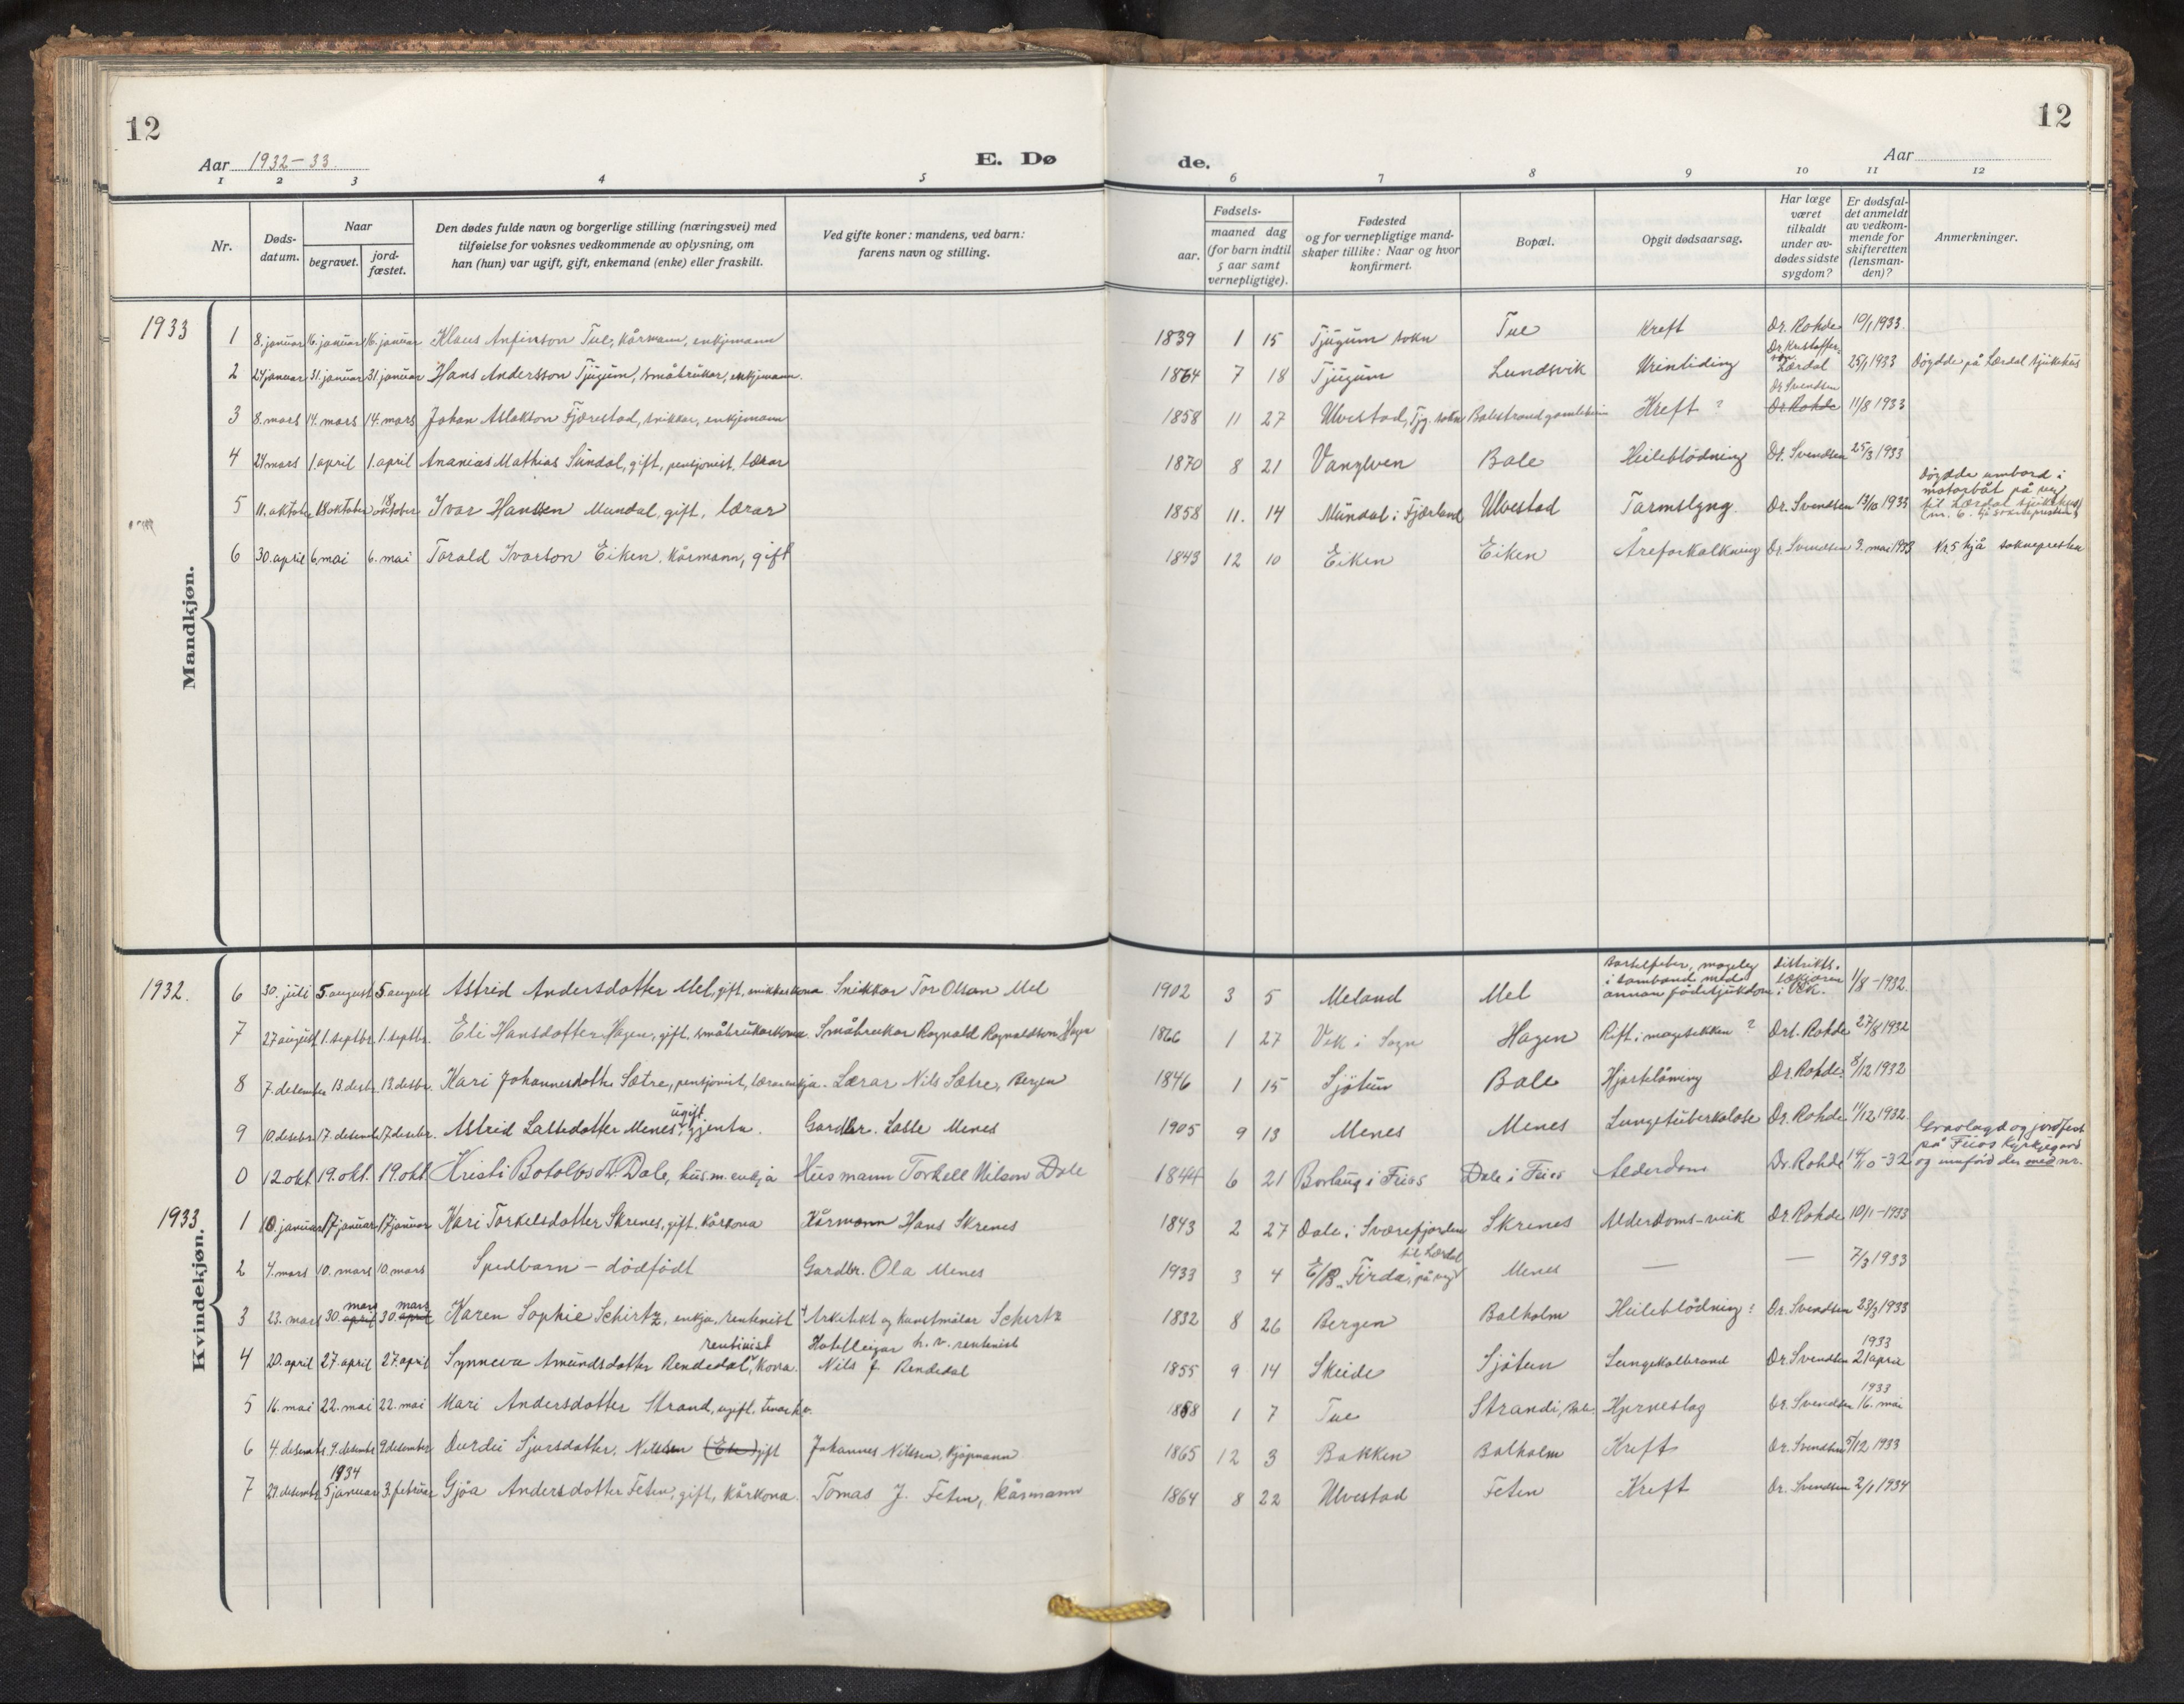 12
12
Aar 1932-33.
E. Dø
de.
Aar
1 2 3 4 5 6 7 8 9 10 11 12
Nr.
Døds-
datum.
Naar
begravet.
jord-
fæstet.
Den dødes fulde navn og borgerlige stilling (næringsvei) med
tilføielse for voksnes vedkommende av oplysning, om
han (hun) var ugift, gift, enkemand (enke) eller fraskilt.
Ved gifte koner: mandens, ved barn:
farens navn og stilling.
Fødsels-
aar.
maaned dag
(for barn indtil
5 aar samt
vernepligtige).
Fødested
og for vernepligtige mand-
skaper tillike: Naar og hvor
konfirmert.
Bopæl.
Opgit dødsaarsag.
Har læge
været
tilkaldt
under av-
dødes sidste
sygdom?
Er dødsfal-
det anmeldt
av vedkom-
mende for
skifteretten
(lensman-
den)?
Anmerkninger.
Mandkjøn.
1933
1 8. januar 16. januar 16. januar Klaus Anfinson Tue, kårmann, enkjemann 1839 1 15 Tjugum sokn Tue Kreft Dr. Rohde 10/1 1933.
2 24 januar 31. januar 31. januar Hans Andersson Tjugum, småbrukar, enkjemann. 1864 7 18 Tjugum Lundsvik Urintiding Dr. Kristoffer- Lærdal 25/1 1933 Døydde på Lærdal sjukehus
3 8. mars 14. mars 14. mars Johan Aslakson Fjærestad, snikkar, enkjemann 1858 11 27 Ulvestad, Tjg. sokn Balestrand gamleheim Kreft ? Dr Svendsen Dr. Rohde 11/8 1933
4 24 mars 1. april 1. april Ananias Mathias Sundal, gift, pensjonist, lærar 1870 8 21 Vanylven Bale Heileblødning Dr. Svendsen 25/3 1933
5 11. oktober 18 oktober 18 oktober Ivar Hanssen Mundal, gift, lærar 1858 11. 14 Mundal i Fjærland Ulvestad Tarmslyng. Dr. Svendsen 13/10 1933 Døydde umbord i
motorbåt på veg
til Lærdal sjukehus
(nr. 6. hjå soknepresten)
6 30. april 6 mai 6. mai Torald Ivarson Eiken, kårmann, gift 1843 12 10 Eiken Eiken Åreforkalkning Dr. Svendsen 3. mai 1933 Nr 5 hjå soknepresten
Kvindekjøn.
1932.
6 30. juli 5 august 5 august Astrid Andersdotter Mel, gift, snikkarkona Snikkar Tor Olsson Mel 1902 3 5 Meland Mel Barselfeber, mogeleg
i samband med
annan fødesjukdom distrikts-
lækjaren
i Vik. 1/8-1932.
7 27 august 1. septbr. 1. septbr. Eli Hansdotter Hagen, gift, småbrukarkona Småbrukar Ragnald Ragnaldson Hagen 1866 1 27 Vik i Sogn Hagen Rift i magesekken ? Dr. Rohde 27/8 1932
8 7. desember 13. desbr. 13. desbr. Kari Johannesdotter Sætre, pensjonist, lærarenkja. Lærar Nils Sætre, Bergen 1846 1 15 Sjøtun Bale Hjartelåming Dr. Rohde 8/12 1932
9 10. desbr. 17. desember 17 desbr. Astrid Lassedotter Menes, ugift, gjenta. Gardbr. Lasse Menes 1905 9 13 Menes Menes Lungetuberkulose Dr. Rohde 11/12 1932.
0 12. okt. 19. okt. 19. okt. Kristi Botolvsdtr. Dale, husm. enkja Husmann Torkell Nilson Dale 1844 6 21 Borlaug i Feios Dale i Feios Alderdom Dr. Rohde 14/10-32 Gravlagd og jordfest
på Feios Kyrkjegard
og innførd der med nr.
1933
1 10 januar 17 januar 17 januar Kari Torkelsdotter Skrenes, gift, kårkona Kårmann Hans Skrenes 1843 2 27 Dale i Sværefjorden Skrenes Alderdoms-veik Dr. Rohde 10/1-1933
2 4. mars 10. mars 10. mars Spedbarn - dødfødt Gardbr. Ola Menes 1933 3 4 E/B „Firda", på veg til Lærdal Menes — — 7/3 1933
3 23. mars 30. mars april 30. mars april Karen Sophie Schirtz, enkja, rentenist Arkitekt og kunstmålar Schirtz 1832 8 26 Bergen Balholm Heileblødning ? Dr. Svendsen 23/3 1933
4 20. april 27. april 27. april Synneva Amundsdotter Rendedal, rentinist kona. Hotelleigar h. v. rentenist
Nils J. Rendedal 1855 9 14 Skeide Sjøtun Lungekolbrand Dr. Svendsen 21 april 1933
5 16. mai 22. mai 22. mai Mari Andersdotter Strand, ugift, 1868 1 7 Tue Strandi, Bale. Hjerneslag Dr. Svendsen 16. mai 1933
6 4. desember 9. desember 9 desember Durdei Sjursdotter Nilssen gift Johannes Nilssen, kjøpmann 1865 12 3 Bakken Balholm Kreft Dr. Svendsen 5/12 1933
7 29. desember 5 januar 1934 3. februar Gjøa Andersdotter Feten, gift, kårkona. Tomas J. Feten, kårmann 1864 8 22 Ulvestad Feten Kreft Dr. Svendsen 2/1 1934